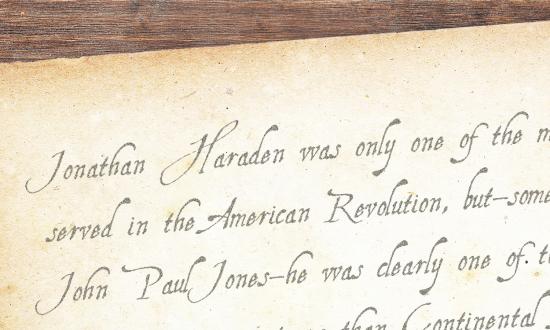 Jonathan Haraden was only one of the
served in the American Revolution, but—some
John Paul Jones—he was clearly one of
than Continental